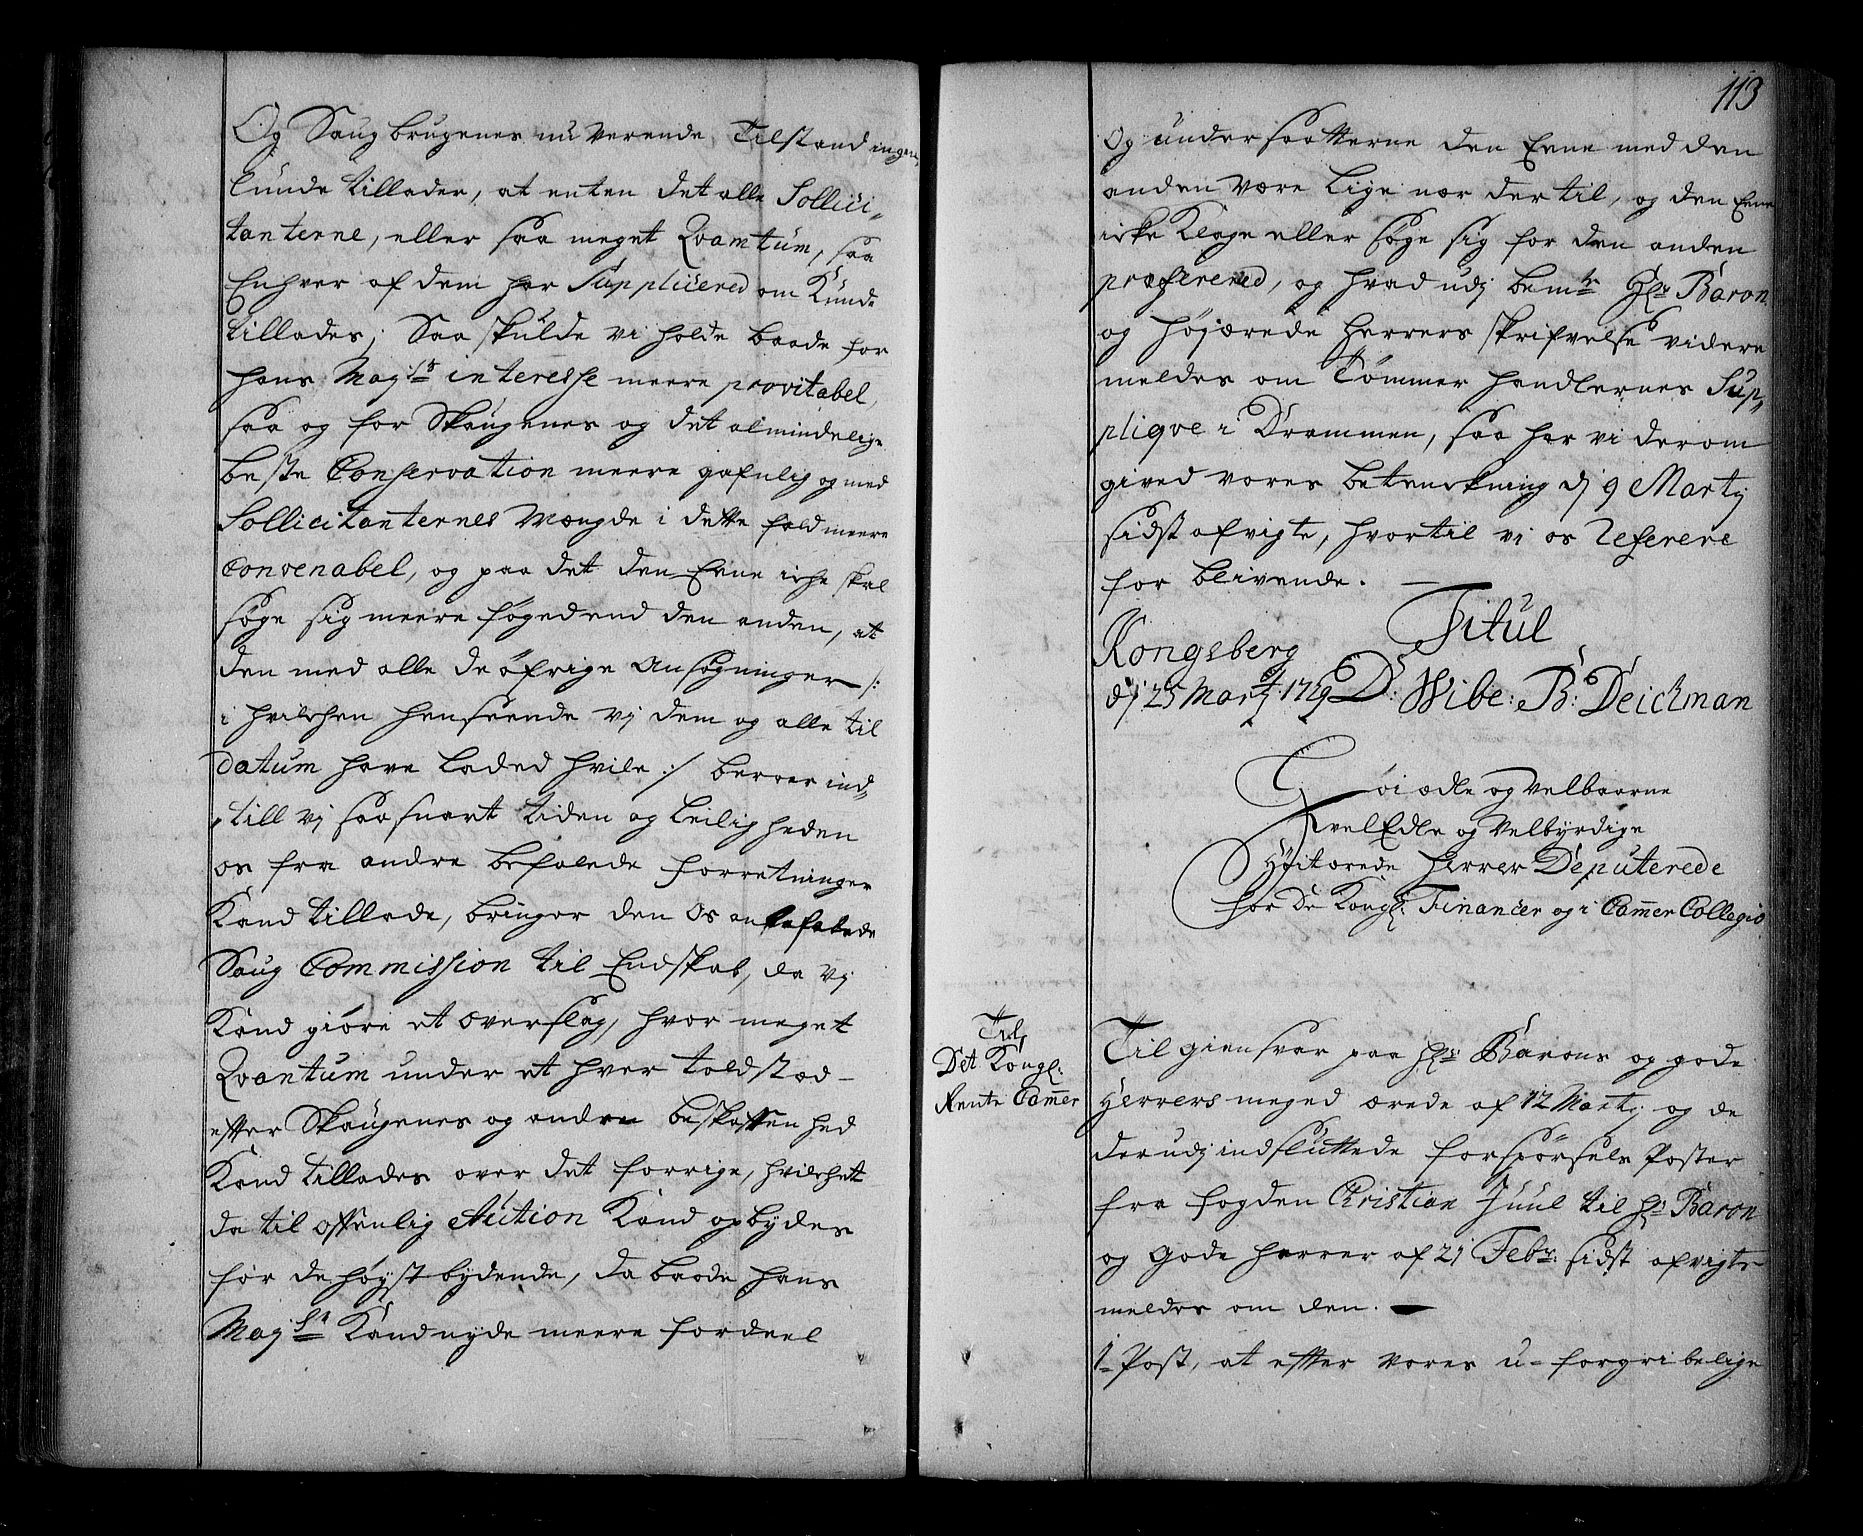 Og Saug brugenes nu verende Tilstand ingen
lunde tillader, at enten det alle Sollici-
tanterne, eller saa meget Qvamtum, saa
Enhver af dem har Supplicered om Kunde
tillades; Saa skulde vi holde baade for
hans Maj:ts interesse meere provitabel,
saa og for Skougenes og det almindelige
beste Conservation meere gafnlig og med
Sollicitanternes Mængde i dette fald meere
Convenabel, og paa det den Eene iche skal
søge sig meere føyed end den anden, at
den med alle de øfrige Ansøgninger /:
i hvilchen henseende vj dem og alle til
datum have laded hvile :/ beroer ind-
till vj saasnart tiden og Leilig heden
os fra andre befalede forretninger
Kand tillade, bringer den os anbefalede
Saug Commission til Endskab, da vj
Kand giøre et overslag, hvor meget
Qvantum under et hver toldstæd
efter Skougenes og andre beskaffen hed
Kand tillades over det forrige, hvilchet
da til offenlig Auction Kand opbydes
for de høyst bydende, da baade hans
Maj:st Kand nyde meere fordeel
113
og undersaatterne den Eene med den
anden være lige nær der til, og den Eene
icke Klage eller søge sig for den anden
præfereret, og hvad udj bem:te Hr: Baron
og højærede Herrers skrifvelse videre
meldes om Tømmer handlernes Sup-
pliqve i Drammen, saa har vi derom
gived vores betenckning dj 9 Martj
sidst afvigte, hvortil vj os referere
for blivende.
Titul
Kongsberg
dj 25 Martj 1729 D: Wibe: B: Deichman
Høi ædle og Velbaarne
Hvel Edle og Velbyrdige
Høit ærede Herrer Deputerede
for De Kongl: Financer og i Cammer Collegio
Til
Det Kongl:
Rente Cammer
Til giensvar paa Hr: Barons og gode
Herrers meged ærede af 12 Martj og de
der udj indsluttede forspørsels Poster
fra fogden Christian Juul til Hr: Baron
og gode herrer af 21 Febr: sidst afvigte
meldes om den.
1 Post, at efter vores u-forgribelige